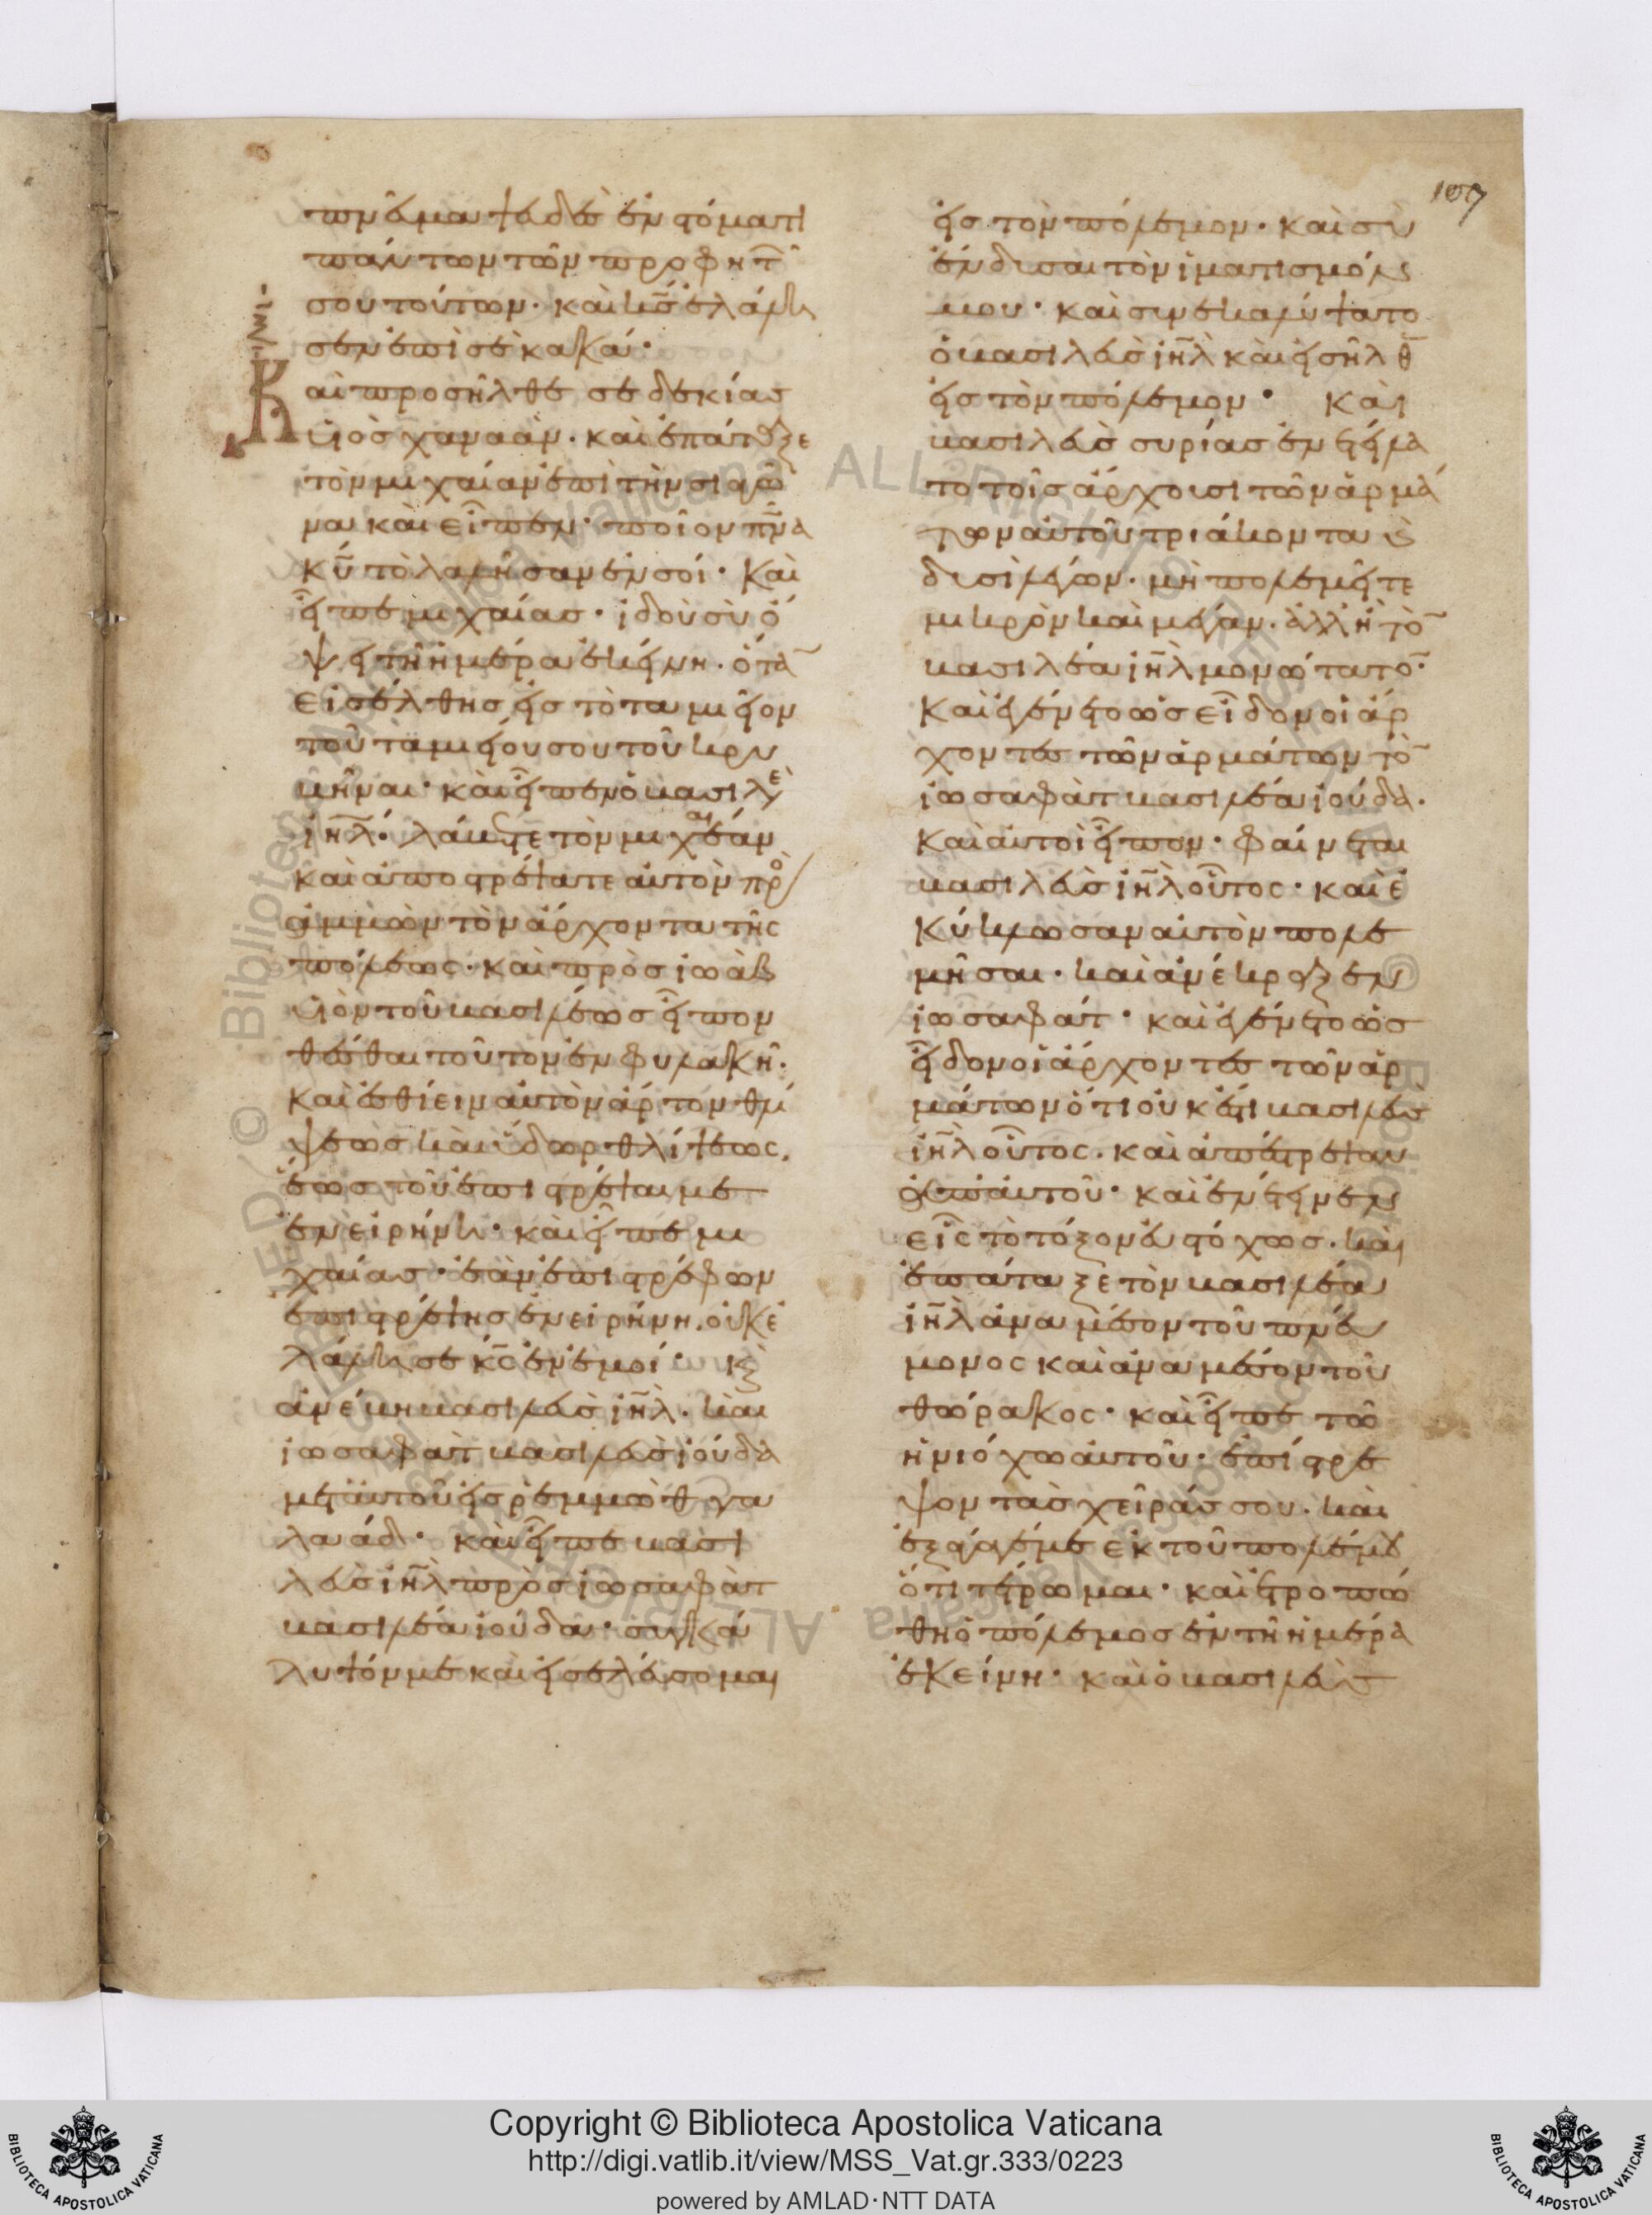 107
πνεῦμα ψεῦδὲς ἐν στόματι
πάντων τῶν προφητ῀
σου τούτων. καὶ κ̅ς̅ ἐλάλη
σεν ἐπὶ σὲ κακά·
Καὶ προσῆλθε σεδεκίας
υἱὸς χαναὰν. καὶ ἐπάταξε
τὸν μιχαίαν ἐπὶ τὴν σιαγό
να καὶ εἶπεν· ποῖον πν̅α
κ̅υ̅ τὸ λαλῆσαν ἐν σοί· καὶ
εἶπε μιχαίας· ἰδοὺ σὺ ὄ
ψει τῆ ἡμέρα ἐκείνη. ὅτα῀
εἰσέλθης εἰς τὸ ταμιεῖον
τοῦ ταμιείου σου τοῦ κρυ
βῆναι· καὶ εἶπεν ὁ βασιλεὺ
ἰη̅λ̅. λάβετε τὸν μιχαίαν
καὶ ἀποστρέψατε αὐτὸν πρὸ
ἐμμὼν τὸν ἄρχοντα τῆς
πόλεως. καὶ πρὸς ἰωὰβ
υἱὸν τοῦ βασιλέως εἶπον
θέσθαι τοῦτον ἐν φυλακῆ.
καὶ ἐσθίειν αὐτὸν ἄρτον θλί
ψεως καὶ ὕδωρ θλίψεως.
ἕως τοῦ ἐπιστρέψαι με
ἐν εἰρήνη· καὶ εἶπε μι
χαίας· ἐὰν ἐπιστρέφων
ἐπιστρέψης ἐν εἰρήνη. οὐκ ἐ
λάλησε κ̅ς̅ ἐν ἐμοί· κὲ
ἀνέβη βασιλεὺς ἰη̅λ. καὶ
ἰωσαφὰτ βασιλεὺς ἰούδα
μετ' αὐτοῦ εἰς ρέμμὼθ γα
λαάδ· καὶ εἶπε βασι
λεὺς ἰη̅λ πρὸς ἰωσαφὰτ
βασιλέα ἰούδα· συγκά
λυψόν με καὶ εἰσελεύσομαι
εἰς τὸν πόλεμον. καὶ σὺ
ἔνδυσαι τὸν ἱματισμόν
μου· καὶ συνεκαλύψατο
ὁ βασιλεὺς ἰη̅λ καὶ εἰσῆλθ̅
εἰς τὸν πόλεμον· καὶ
βασιλεὺς συρίας ἐνετείλα
το τοῖς ἄρχουσι τῶν ἁρμά
των αὐτοῦ τριάκοντα κ̀
δυσὶ λέγων. μὴ πολεμεῖτε
μικρὸν καὶ μέγαν. ἀλλ' ἢ τὸ῀
βασιλέα ἰη̅λ μονώτατο῀·
καὶ ἐγένετο ὡς εἶδον οἱ ἄρ
χοντες τῶν ἁρμάτων τὸ῀
ἰωσαφὰτ βασιλέα ἰούδα.
καὶ αὐτοὶ εἶπον· φαίνεται
βασιλεὺς ἰη̅λ οὗτος· καὶ ἐ
κύκλωσαν αὐτὸν πολε
μῆσαι. καὶ ἀνέκραξεν
ἰωσαφάτ· καὶ ἐγένετο ὡς
εἶδον οἱ ἄρχοντες τῶν ἁρ
μάτων ὅτι οὐκ ἔστι βασιλεὺς
ἰη̅λ οὗτος. καὶ ἀπέστρεψαν
ἀπ' αὐτοῦ· καὶ ἐνέτεινεν
εἷς τὸ τόξον εὐστόχως. καὶ
ἐπάταξε τὸν βασιλέα
ἰη̅λ ἀνα μέσον τοῦ πνεύ
μονος καὶ ἀνα μέσον τοῦ
θώρακος· καὶ εἶπε τῶ
ἡνιόχω αὐτοῦ· ἐπίστρε
ψον τὰς χεῖράς σου. καὶ
ἐξάγαγέ με ἐκ τοῦ πολέμου
ὅτι τέτρωμαι· καὶ ἐτροπώ
θη ὁ πόλεμος ἐν τῆ ἡμέρα
ἐκείνη· καὶ ὁ βασιλεὺς
Copyright © Biblioteca Apostolica Vaticana
http://digi.vatlib.it/view/MSS_Vat.gr.333/0223
powered by AMLAD·NTT DATA
BIBLIOTECA APOSTOLICA VATICANA
BIBLIOTECA APOSTOLICA VATICANA